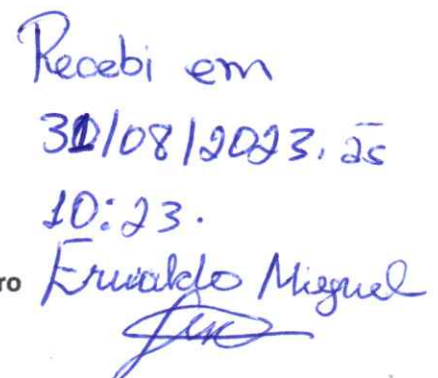 Recebi em
31/08/2023, às
10:23.
ro Erivaldo Miguel